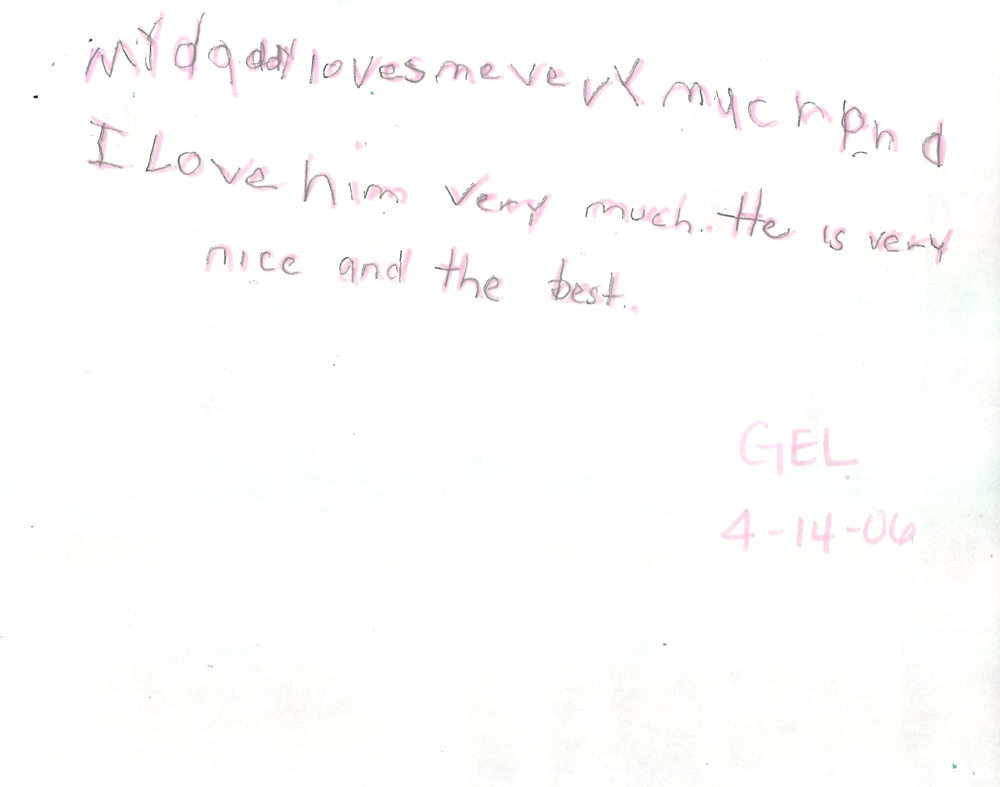 MY daddy loves me very much and
I Love him very much. He is very
nice and the best.
GEL
4-14-06